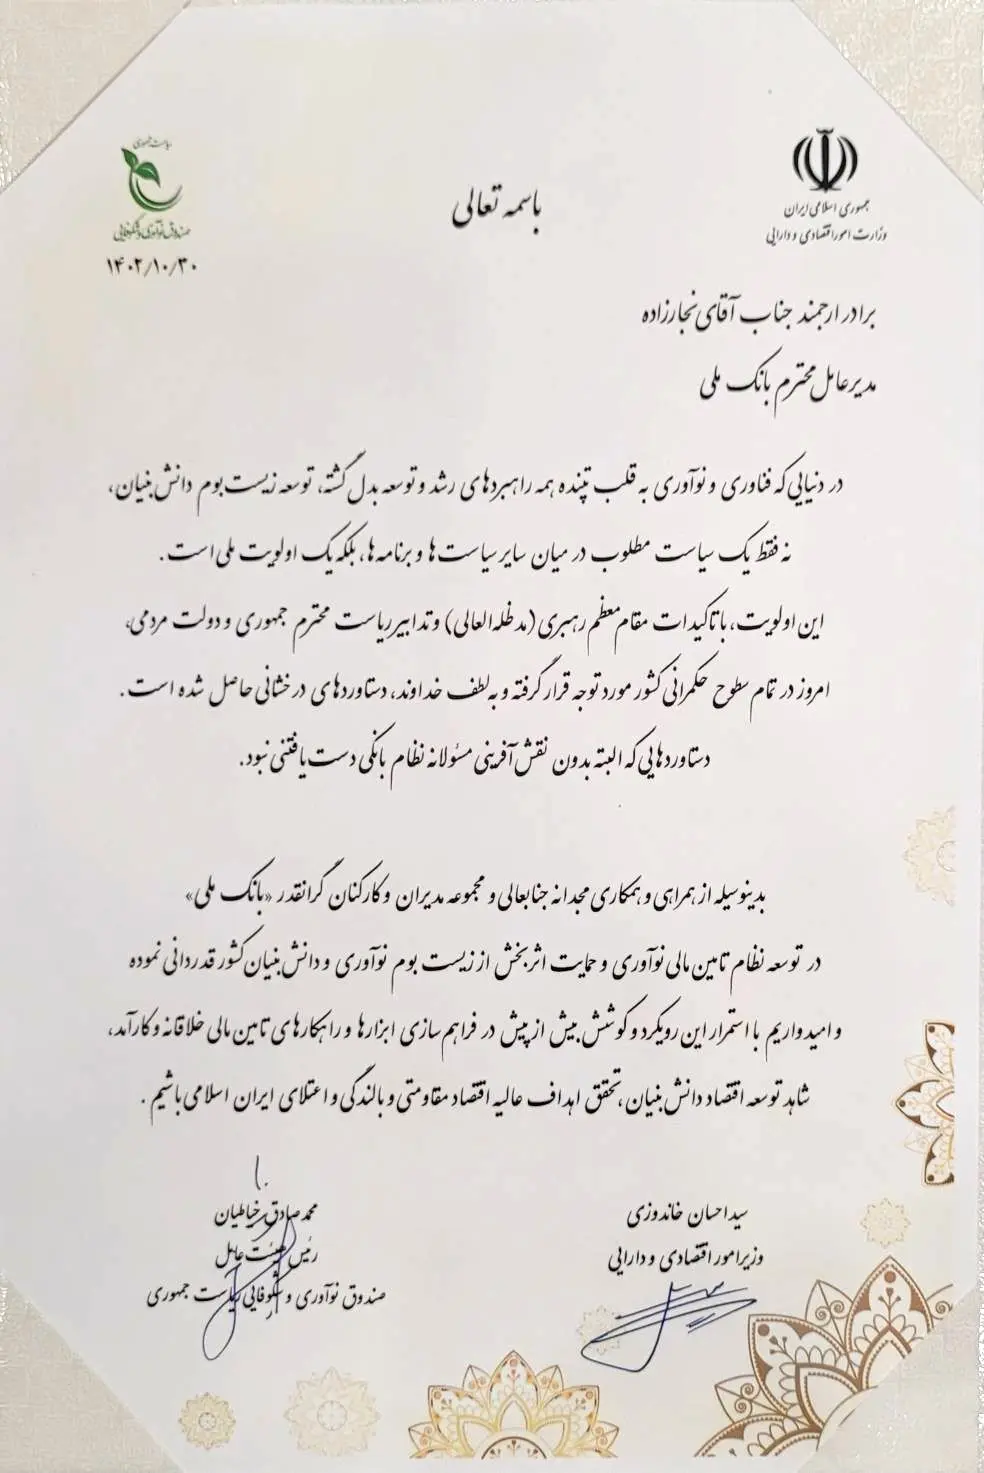 باسمه تعالی
جمهوری اسلامی ایران
وزارت امور اقتصادی و دارایی
ریاست جمهوری
صندوق نوآوری و شکوفایی
۱۴۰۲/۱۰/۳۰
برادر ارجمند جناب آقای نجارزاده
مدیرعامل محترم بانک ملی
در دنیایی که فناوری و نوآوری به قلب تپنده همه راهبردهای رشد و توسعه بدل گشته، توسعه زیست بوم دانش بنیان،
نه فقط یک سیاست مطلوب در میان سایر سیاست ها و برنامه ها، بلکه یک اولویت ملی است.
این اولویت، با تاکیدات مقام معظم رهبری (مدظله العالی) و تدابیر ریاست محترم جمهوری و دولت مردمی،
امروز در تمام سطوح حکمرانی کشور مورد توجه قرار گرفته و به لطف خداوند، دستاوردهای درخشانی حاصل شده است.
دستاوردهایی که البته بدون نقش آفرینی مسئولانه نظام بانکی دست یافتنی نبود.
بدینوسیله از همراهی و همکاری مجدانه جنابعالی و مجموعه مدیران و کارکنان گرانقدر «بانک ملی»
در توسعه نظام تامین مالی نوآوری و حمایت اثربخش از زیست بوم نوآوری و دانش بنیان کشور قدردانی نموده
و امیدواریم با استمرار این رویکرد و کوشش بیش از پیش در فراهم سازی ابزارها و راهکارهای تامین مالی خلاقانه و کارآمد،
شاهد توسعه اقتصاد دانش بنیان، تحقق اهداف عالیه اقتصاد مقاومتی و بالندگی و اعتلای ایران اسلامی باشیم.
سید احسان خاندوزی
وزیر امور اقتصادی و دارایی
محمدصادق خیاطیان
رئیس هیئت عامل
صندوق نوآوری و شکوفایی ریاست جمهوری